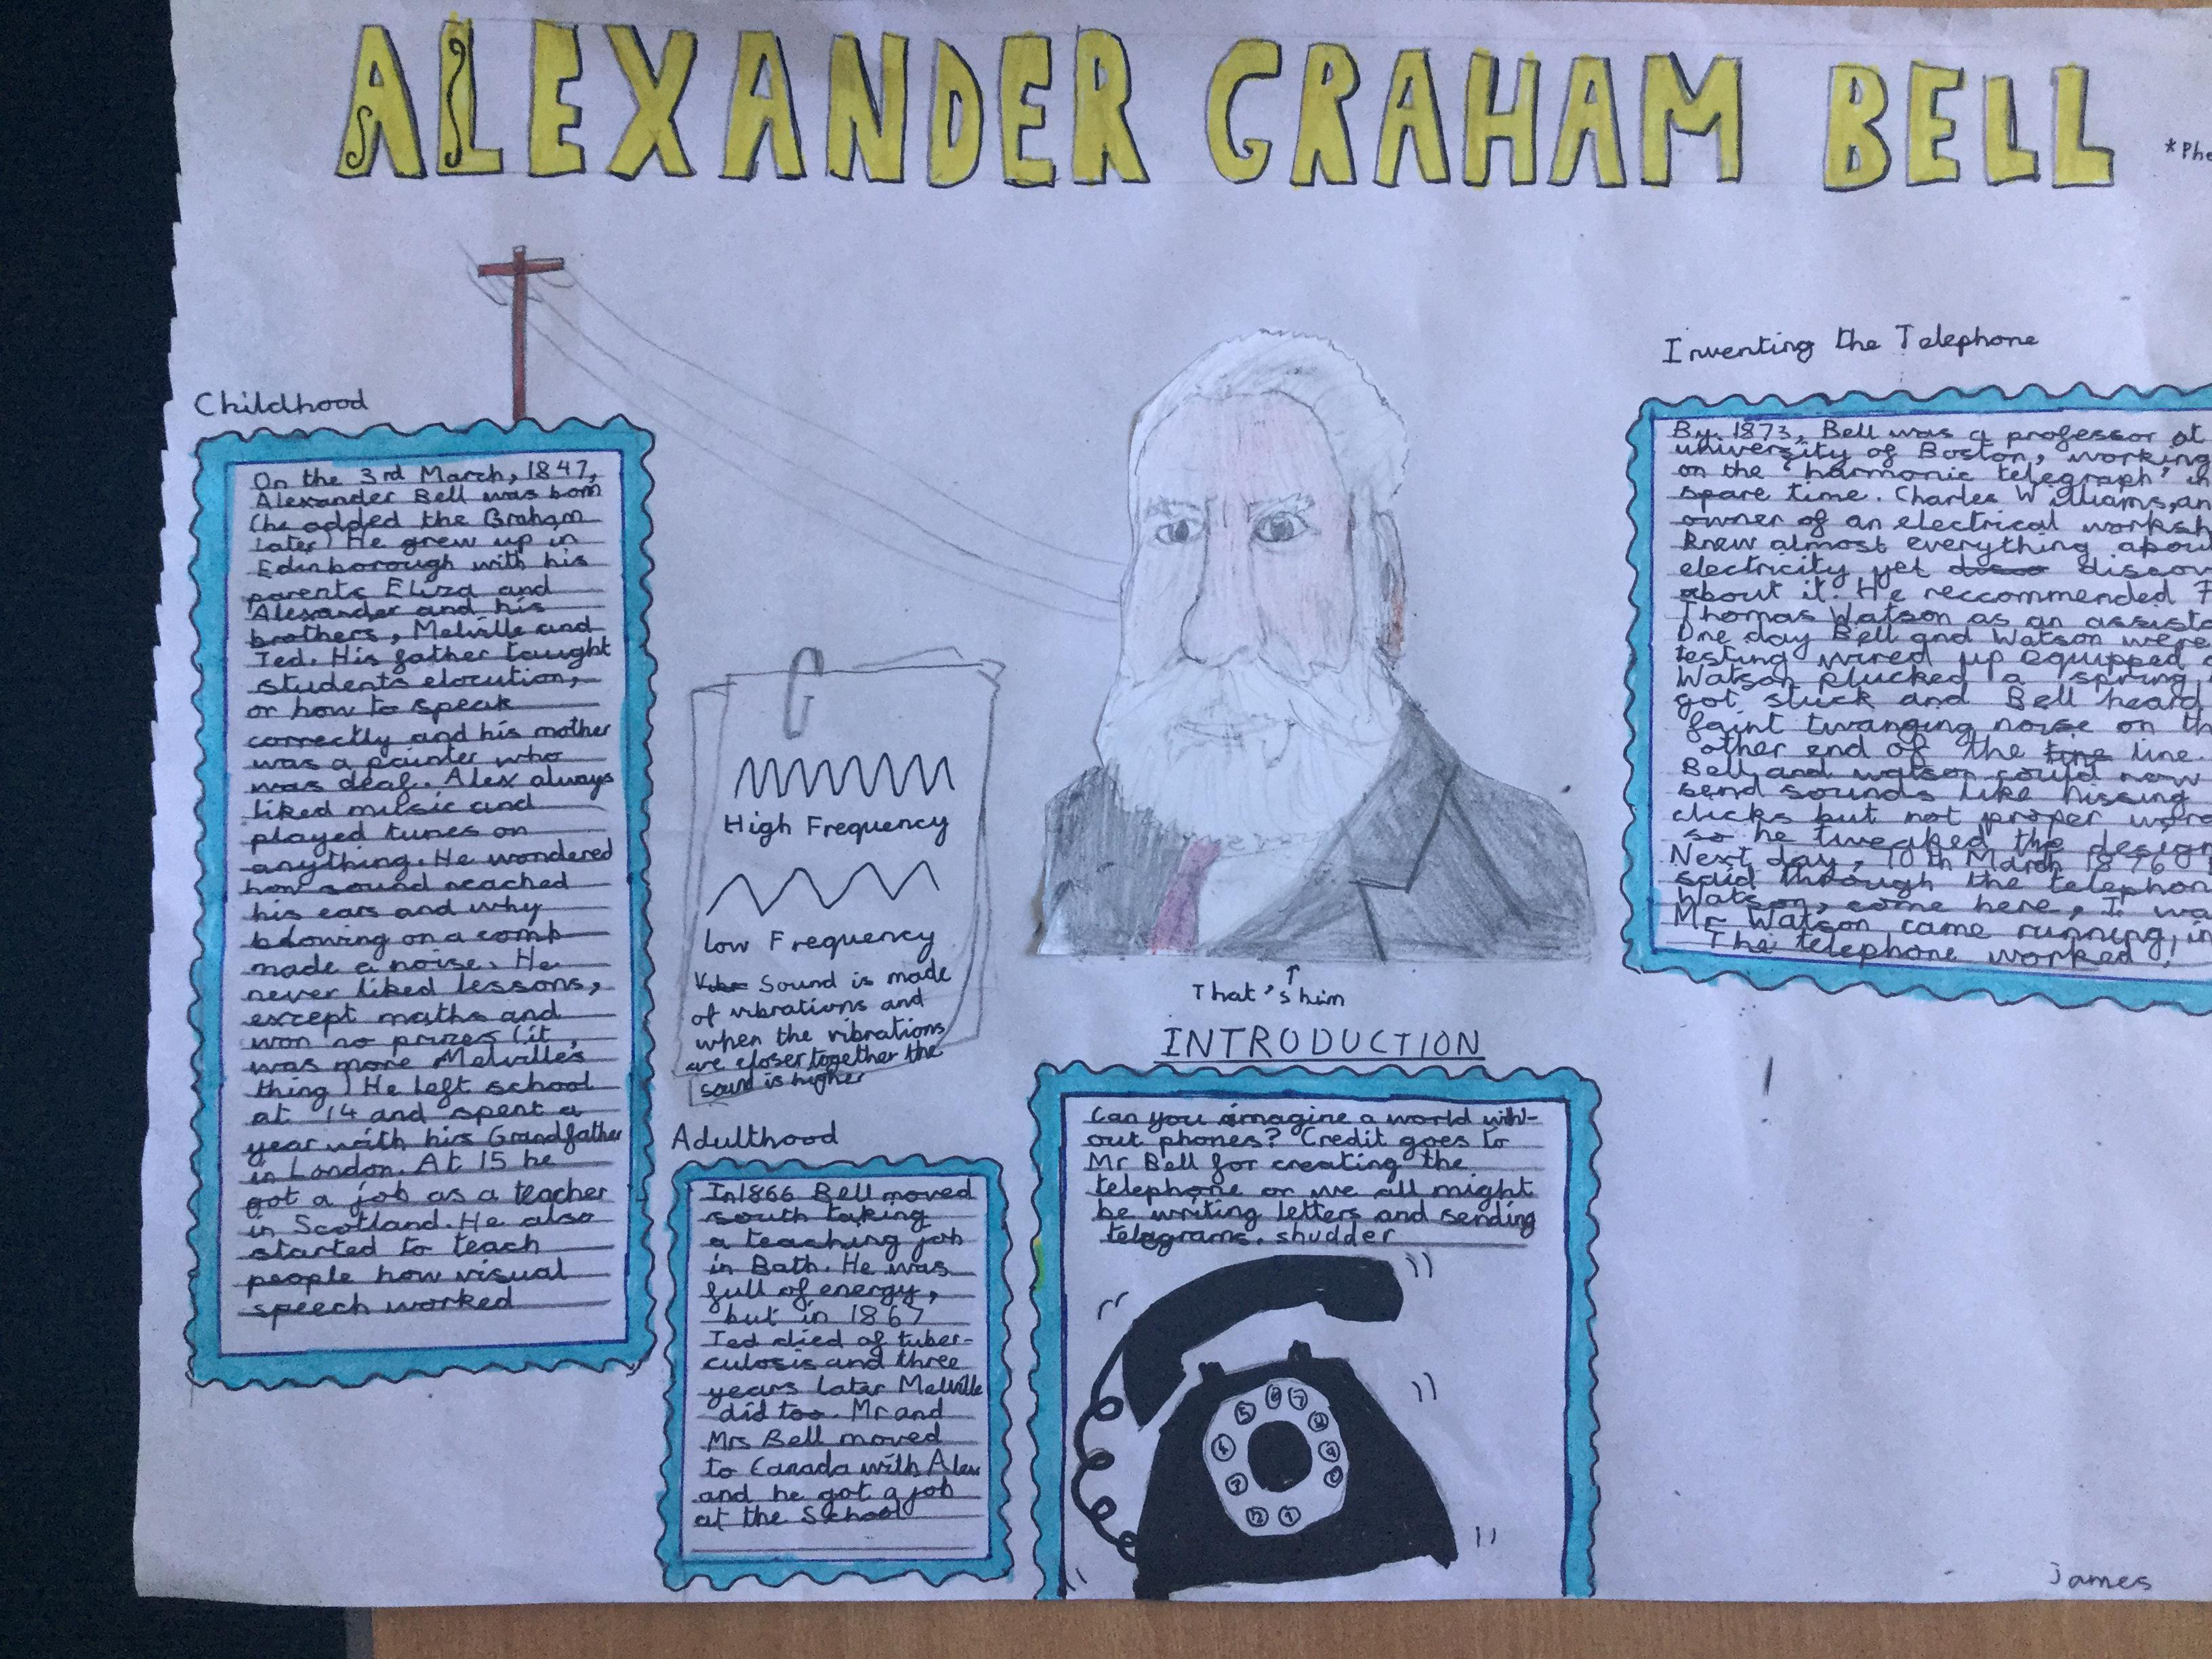 ALEXANDER GRAHAM BELL
*Pho
Childhood
On the 3rd March, 1847,
Alexander Bell was born
(he added the Graham
later) He grew up in
Edinborough with his
parents Eliza and
Alexander and his
brothers, Melville and
Ted. His father taught
students elocution,
or how to speak
correctly and his mother
was a painter who
was deaf. Alex always
liked music and
played tunes on
anything. He wondered
how sound reached
his ears and why
blowing on a comb
made a noise. He
never liked lessons,
except maths and
won no prizes (it
was more Melville's
thing) He left school
at 14 and spent a
year with his Grandfather
in London. At 15 he
got a job as a teacher
in Scotland. He also
started to teach
people how visual
speech worked
High Frequency
low Frequency
Sound is made
of vibrations and
when the vibrations
are closer together the
sound is higher
Adulthood
In 1866 Bell moved
south taking
a teaching job
in Bath. He was
full of energy,
but in 1867
Ted died of tuber-
culosis and three
years later Melville
did too. Mr and
Mrs Bell moved
to Canada with Alex
and he got a job
at the School
That's him
INTRODUCTION
Can you imagine a world with-
out phones? Credit goes to
Mr Bell for creating the
telephone or we all might
be writing letters and sending
telegrams. shudder
5 6 7 8
4 9
3 0
2 1
Inventing the Telephone
By 1873, Bell was a professor at
university of Boston, working
on the 'harmonic telegraph' in
spare time. Charles Williams, an
owner of an electrical worksh
knew almost everything abou
electricity yet discov
about it. He reccommended
Thomas Watson as an assista
One day Bell and Watson were
testing wired up equipped
Watson plucked a spring
got stuck and Bell heard
faint twanging noise on th
other end of the line.
Bell and watson could now
send sounds like hissing
clicks but not proper word
so he tweaked the design
Next day, 10th March 1876
said through the telephon
Watson, come here, I wa
Mr Watson came running in
The telephone worked!
james